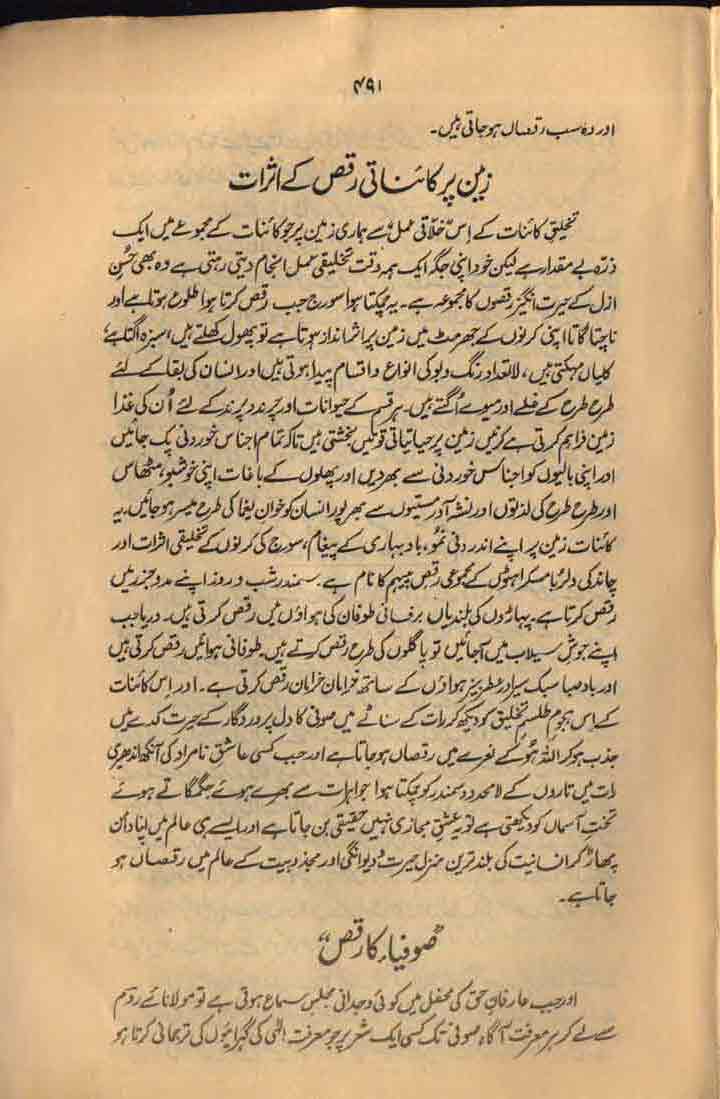 ۴۹۱
اور وہ سب رقصاں ہو جاتی ہیں۔
زمین پر کائناتی رقص کے اثرات
تخلیقِ کائنات کے اِس خلّاقی عمل سے ہماری زمین پر جو کائنات کے مجموعے میں ایک
ذرّہ بے مقدار ہے لیکن خود اپنی جگہ ایک ہمہ وقت تخلیقی عمل انجام دیتی رہتی ہے وہ بھی حُسنِ
ازل کے حیرت انگیز رقصوں کا مجموعہ ہے۔ یہ چمکتا ہوا سورج جب رقص کرتا ہوا طلوع ہوتا ہے اور
ناچتا گاتا اپنی کرنوں کے جھرمٹ میں زمین پر اثر انداز ہوتا ہے تو پھول کھلتے ہیں، سبزہ اُگتا ہے،
کلیاں مہکتی ہیں، لاتعداد رنگ و بو کی انواع و اقسام پیدا ہوتی ہیں اور انسان کی بقا کے لئے
طرح طرح کے غلے اور میوے اُگتے ہیں۔ ہر قسم کے حیوانات اور چرند و پرند کے لئے اُن کی غذا
زمین فراہم کرتی ہے کرنیں زمین پر حیاتیاتی قوتیں بخشتی ہیں تاکہ تمام اجناس خوردنی پک جائیں
اور اپنی بالیوں کو اجناس خوردنی سے بھر دیں اور پھلوں کے باغات اپنی خوشبو، مٹھاس
اور طرح طرح کی لذتوں اور نشہ آور مستیوں سے بھرپور انسان کو خوانِ یغما کی طرح میسر ہو جائیں۔ یہ
کائنات زمین پر اپنے اندرونی نمُو، باد بہاری کے پیغام، سورج کی کرنوں کے تخلیقی اثرات اور
چاند کی دلرُبا مسکراہٹوں کے مجموعی رقصِ پیہم کا نام ہے۔ سمندر شب و روز اپنے مد و جذر میں
رقص کرتا ہے۔ پہاڑوں کی بلندیاں برفانی طوفان کی ہواؤں میں رقص کرتی ہیں۔ دریا جب
اپنے جوشِ سیلاب میں آجائیں تو پاگلوں کی طرح رقص کرتے ہیں۔ طوفانی ہوائیں رقص کرتی ہیں
اور بادِ صبا سبک سیر اور عطر بیز ہواؤں کے ساتھ خراماں خراماں رقص کرتی ہے۔ اور اِس کائنات
کے اِس ہجومِ طلسمِ تخلیق کو دیکھ کر رات کے سناٹے میں صوفی کا دل پروردگار کے حیرت کدے میں
جذب ہو کر اللہ ہُو کے نعرے میں رقصاں ہو جاتا ہے اور جب کسی عاشق نامراد کی آنکھ اندھیری
رات میں تاروں کے لامحدود سمندر کو چمکتا ہوا جواہرات سے بھرے ہوئے جگمگاتے ہوئے
تختِ آسماں کو دیکھتی ہے تو یہ عشقِ مجازی نہیں حقیقی بن جاتا ہے اور ایسے ہی عالم میں اپنا دامن
پھاڑ کر انسانیت کی بلند ترین منزل حیرت و دیوانگی اور مجذوبیت کے عالم میں رقصاں ہو
جاتا ہے۔
”صوفیاء کا رقص“
اور جب عارفانِ حق کی محفل میں کوئی وجدانی مجلسِ سماع ہوتی ہے تو مولانائے روم
سے لے کر ہر معرفت آگاہ صوفی تک کسی ایک شعر پر جو معرفت الٰہی کی گہرائیوں کی ترجمانی کرتا ہو